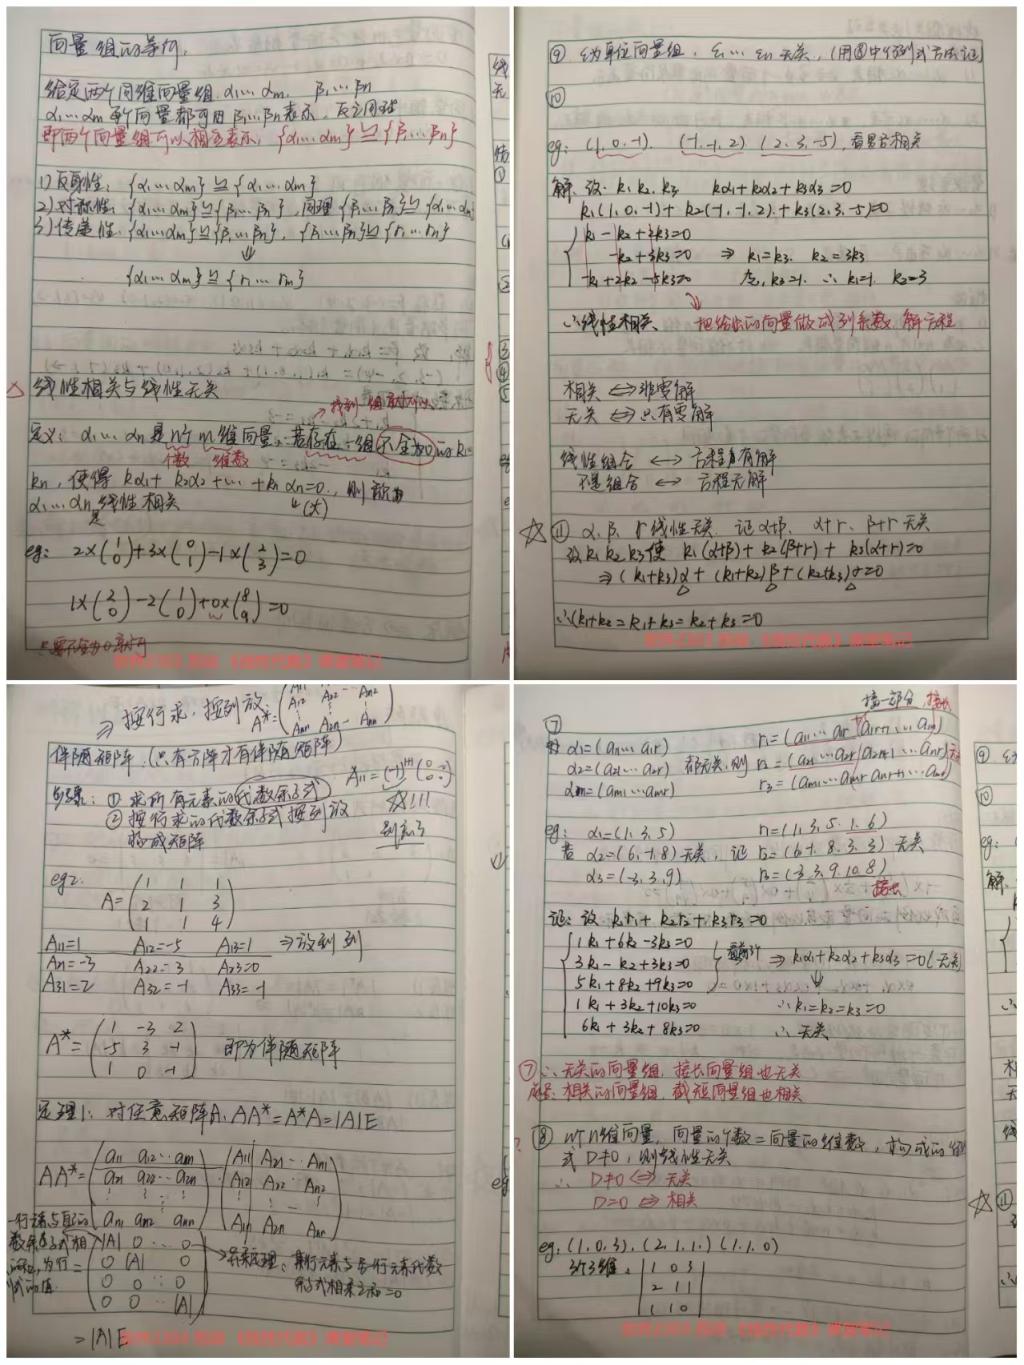 向量组的等价.
给定两个同维向量组 α₁…αₘ, β₁…βₙ
α₁…αₘ 每个向量都可由 β₁…βₙ 表示, 反之同理
即两个向量组可以相互表示, {α₁…αₘ}≌{β₁…βₙ}
1)反身性: {α₁…αₘ}≌{α₁…αₘ}
2)对称性: {α₁…αₘ}≌{β₁…βₙ}, 同理 {β₁…βₙ}≌{α₁…αₘ}
3)传递性: {α₁…αₘ}≌{β₁…βₙ}, {β₁…βₙ}≌{r₁…rₙ}
⇓
{α₁…αₘ}≌{r₁…rₙ}
△ 线性相关与线性无关
→ 找到一组就可以
定义: α₁…αₙ 是n个m维向量, 若存在一组不全为0的k₁…
个数 维数
kₙ, 使得 k₁α₁+k₂α₂+…+kₙαₙ=0, 则称为
α₁…αₙ是线性相关 (*)
eg: 2×(1 0)+3×(0 1)-1×(2 3)=0
1×(2 0)-2(1 0)+0×(8 9)=0
只要不全为0就可
⑨ ε为单位向量组, ε₁…εₙ 无关, (用⑧中行列式方法证)
⑩
eg: (1,0,-1), (-1,-1,2) (2,3,-5), 看是否相关
解: 设: k₁ k₂ k₃ k₁α₁+k₂α₂+k₃α₃=0
k₁(1,0,-1)+k₂(-1,-1,2)+k₃(2,3,-5)=0
k₁-k₂+2k₃=0
-k₂+3k₃=0 ⇒ k₁=k₃, k₂=3k₃
-k₁+2k₂-5k₃=0 令, k₃=1. ∴ k₁=1 k₂=3
∴线性相关. 把给出的向量做成列系数, 解方程
相关 ⇔ 非零解
无关 ⇔ 只有零解
线性组合 ↔ 方程有解
不是组合 ↔ 方程无解
☆ ⑪ α, β, r 线性无关. 证 α+β, α+r, β+r 无关
设 k₁ k₂ k₃ 使 k₁(α+β)+k₂(β+r)+k₃(α+r)=0
⇒(k₁+k₃)α+(k₁+k₂)β+(k₂+k₃)r=0
∴(k₁+k₂=k₁+k₃=k₂+k₃=0
⇒ 按行求, 按列放. A*=(A₁₁ A₂₁ … Aₙ₁
A₁₂ A₂₂ … Aₙ₂
A₁ₙ A₂ₙ … Aₙₙ)
伴随矩阵. (只有方阵才有伴随矩阵)
步骤: ① 求所有元素的代数余子式 ☆!!!
② 按行求的代数余子式按列放 别忘了
构成矩阵
eg2.
A=(1 1 1
2 1 3
1 1 4)
A₁₁=1 A₁₂=-5 A₁₃=1 ⇒放到列
A₂₁=-3 A₂₂=3 A₂₃=0
A₃₁=2 A₃₂=-1 A₃₃=-1
A*=(1 -3 2
-5 3 -1
1 0 -1) 即为伴随矩阵
定理1: 对任意矩阵A, AA*=A*A=|A|E
AA*=(a₁₁ a₁₂ … a₁ₙ
a₂₁ a₂₂ … a₂ₙ
aₙ₁ aₙ₂ aₙₙ) (A₁₁ A₂₁ … Aₙ₁
A₁₂ A₂₂ … Aₙ₂
A₁ₙ A₂ₙ … Aₙₙ)
=(|A| 0 … 0
0 |A| 0
0 0 0
0 0 … |A|)
异乘定理: 某行元素与另一行元素代数
余子式相乘之和=0
=|A|E
接一部分, 接长
⑦
若 α₁=(a₁₁…a₁ᵣ) r₁=(a₁₁…a₁ᵣ a₁ᵣ₊₁…a₁ₙ)
α₂=(a₂₁…a₂ᵣ) 都无关, 则 r₂=(a₂₁…a₂ᵣ a₂ᵣ₊₁…a₂ₙ) 无关
αₘ=(aₘ₁…aₘᵣ) r₃=(aₘ₁…aₘᵣ aₘᵣ₊₁…aₘₙ)
eg: α₁=(1,3,5) r₁=(1,3,5,1,6)
若 α₂=(6,-1,8) 无关, 证 r₂=(6,-1,8,3,3) 无关
α₃=(-3,3,9) r₃=(-3,3,9,10,8)
接长
证: 设: k₁r₁+k₂r₂+k₃r₃=0
1k₁+6k₂-3k₃=0
3k₁-k₂+3k₃=0 ⇒ k₁α₁+k₂α₂+k₃α₃=0(无关)
5k₁+8k₂+9k₃=0
1k₁+3k₂+10k₃=0 ∴k₁=k₂=k₃=0
6k₁+3k₂+8k₃=0 ∴ 无关
⑦ ∴ 无关的向量组, 接长向量组也无关
相关的向量组, 截短向量组也相关
⑧ n个n维向量, 向量的个数=向量的维数, 构成的行列
式 D≠0, 则线性无关
∴ D≠0 ⇔ 无关
D=0 ⇔ 相关
eg: (1,0,3), (2,1,1,) (1,1,0)
3个3维, |1 0 3
2 1 1
1 1 0|